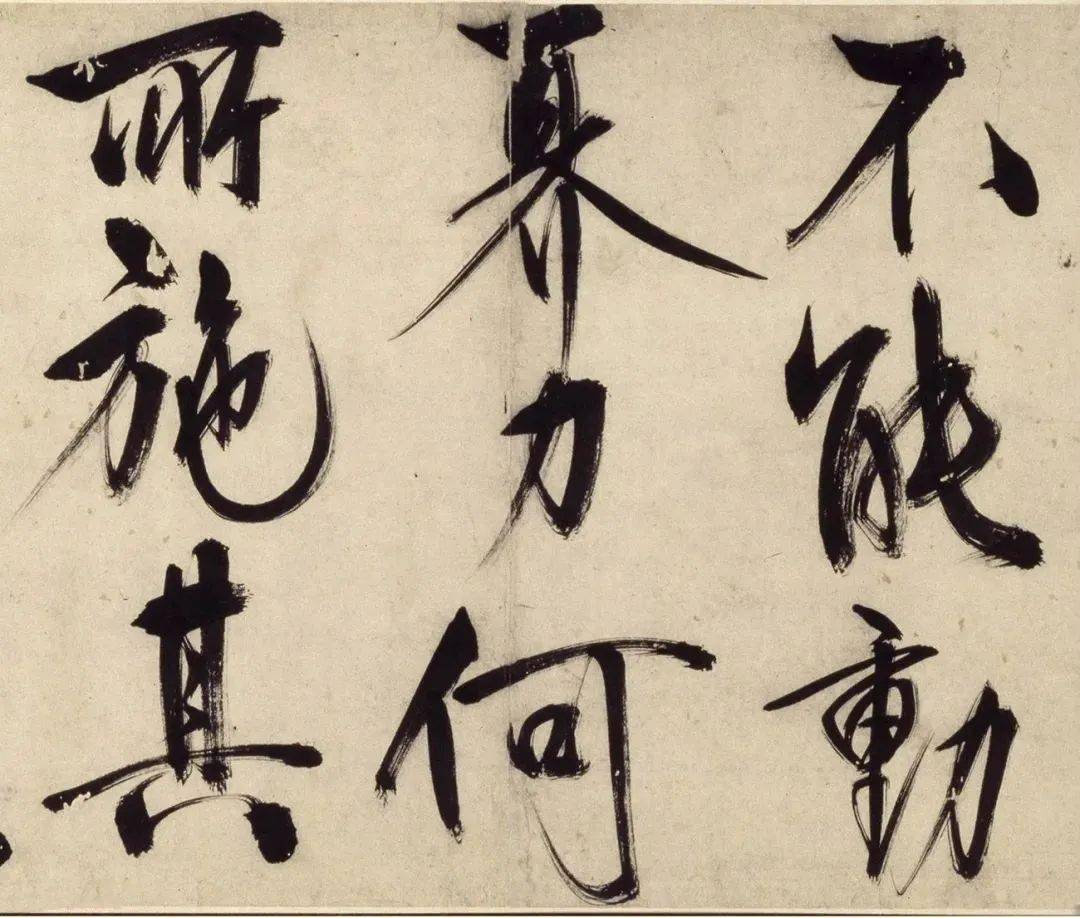 不能動
奡力何
所施其